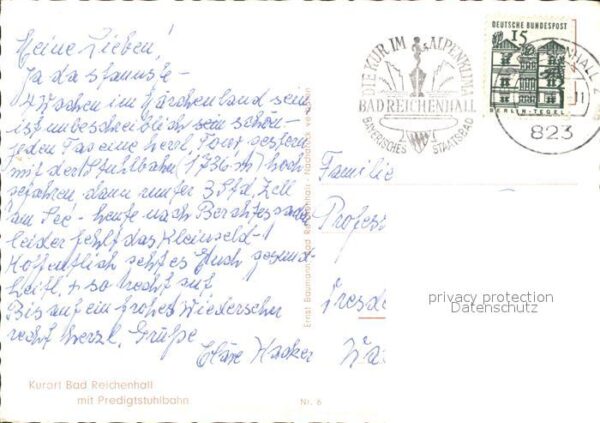 Meine Lieben!
Ja da staunste -
4 Wochen im Märchenland sein,
ist unbeschreiblich sein schön -
jeden Tag eine herrl. Tour, gestern
mit der Stuhlbahn (1736 m) hoch
gefahren, dann runter 3 Std. Zell
am See - heute nach Berchtesgaden
leider fehlt das Kleingeld -!
Hoffentlich geht es Euch gesund-
heitl. + so recht gut
Bis auf ein frohes Wiedersehen
recht herzl. Grüße
Hacker
Kurort Bad Reichenhall
mit Predigtstuhlbahn
Nr. 6
Ernst Baumann, Bad Reichenhall
DIE KUR IM ALPENKLIMA
BAD REICHENHALL
BAYERISCHES STAATSBAD
DEUTSCHE BUNDESPOST
15
BERLIN-TEGEL
823
Familie
Profess
Dresd
privacy protection
Datenschutz